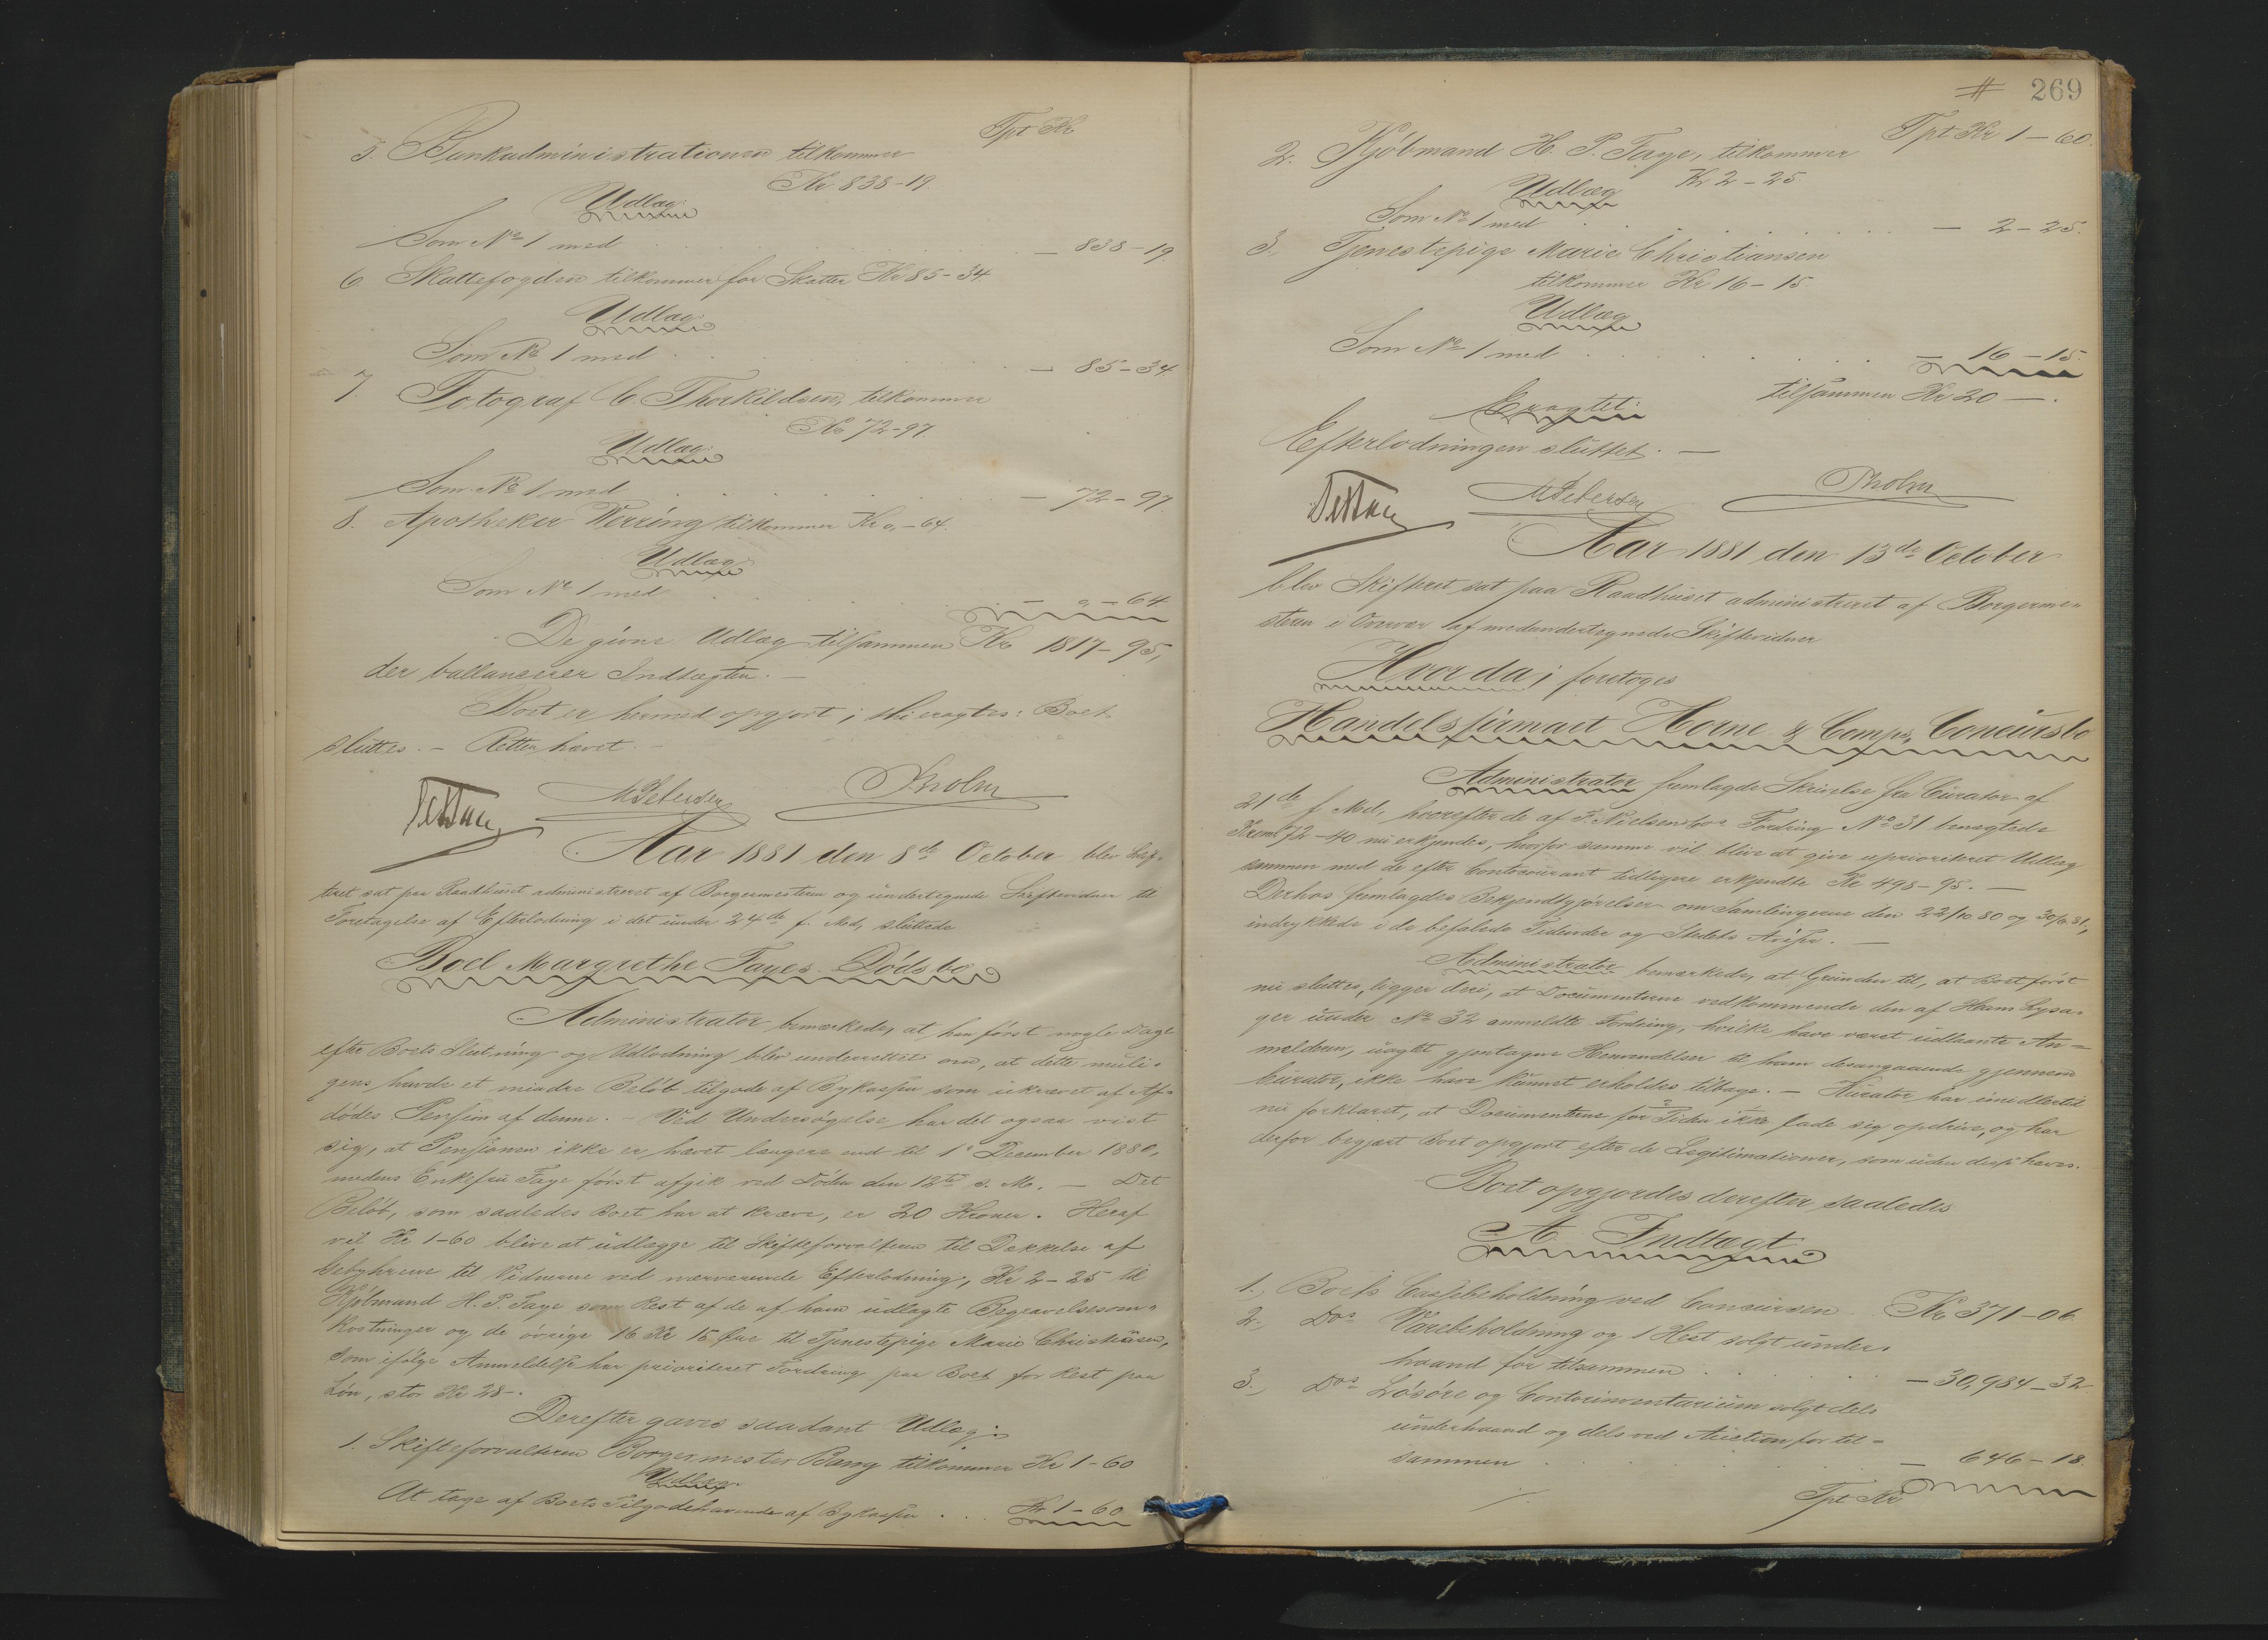 Tpt Kr
5. Bankadministrationen tilkommer
Kr 838-19.
Udlæg:
Som No 1 med — 838-19.
6 Skattefogden tilkommer for Skatter Kr 85-34.
Udlæg:
Som No 1 med — 85-34.
7. Fotograf C. Thorkildsen, tilkommer
Kr 72-97.
Udlæg:
Som No 1 med — 72-97.
8. Apotheker Werring tilkommer Kr 0,-64.
Udlæg
Som No 1 med — 0 — 64
De givne Udlæg tilsammen Kr 1817-95,
der ballancerer Indtægten. —
Boet er hermed opgjort; thi eragtes: Boet
sluttes. — Retten hævet. —
M Petersen
Aar 1881 den 8de October blev Skif-
teret sat paa Raadhuset administreret af Borgermesteren og undertegnede Skiftevidner til
Foretagelse af Efterlodning i det under 24de f. Md, sluttede
Boel Margrethe Fayes Dödsbo
Administrator bemærkede, at han först nogle Dage
efter Boets Slutning og Udlodning blev underrettet om, at dette muli-
gens havde et mindre Belöb tilgode af Bykassen som ukrævet af Af-
dödes Pension af denne. — Ved Undersögelse har det ogsaa vist
sig, at Pensionen ikke er hævet længere end til 1ste December 1880,
medens Enkefru Faye först afgik ved Döden den 12te s. M. — Det
Belöb, som saaledes Boet har at kræve, er 20 Kroner. Heraf
vil Kr 1-60 blive at udlægge til Skifteforvalteren til Dækkelse af
Gebyhrene til Vidnerne ved nærværende Efterlodning, Kr 2-25 til
Kjöbmand H. P. Faye som Rest af de af ham udlagte Begravelsesom-
kostninger og de övrige 16 Kr 15 Öre til Tjenestepige Marie Christiansen,
som ifölge Anmeldelse har prioriteret Fordring paa Boet for Rest paa
Lön, stor Kr 28-.
Derefter gaves saadant Udlæg:
1. Skifteforvalteren Borgermester Bang tilkommer Kr 1-60
Udlæg.
At tage af Boets Tilgodehavende af Bykassen . . . Kr 1-60
269
Tpt Kr 1-60.
2. Kjöbmand H. P. Faye, tilkommer
Kr 2-25.
Udlæg
Som No 1 med — 2-25.
3. Tjenestepige Marie Christiansen
tilkommer Kr 16-15.
Udlæg
Som No 1 med — 16-15.
tilsammen Kr 20 —.
Eragtet:
Efterlodningen sluttet. —
M Petersen
Aar 1881 den 13de October
blev Skifteret sat paa Raadhuset administreret af Borgerme-
steren i Overvær af medundertegnede Skiftevidner
Hvorda; foretoges
Handelsfirmaet Horne & Comps, Concursbo
Administrator fremlagde Skrivelse fra Curator af
21de f. Md, hvorefter de af F. Nielsens Fordring No 31 benægtede
Kroner 72-40 nu erkjendes, hvorfor samme vil blive at give uprioriteret Udlæg
sammen med de efter Contocourant tidligere erkjendte Kr 498-95. —
Derhos fremlagdes Bekjendtgjörelser om Samlingerne den 22/10 80 og 30/9 81,
indrykkede i de befalede Tidender og Stedets Aviser. —
Administrator bemærkede, at Grunden til, at Boet först
nu sluttes, ligger deri, at Documenterne vedkommende den af Herm Lysa-
ger under No 32 anmeldte Fordring, hvilke have været udlaante An-
melderen, uagtet gjentagne Henvendelser til ham desangaaende gjennem
Curator, ikke have kunnet erholdes tilbage. — Kurator har imidlertid
nu forklaret, at Documenterne for Tiden ikke lade sig opdrive, og har
derfor begjært Boet opgjort efter de Legitimationer, som uden dem haves.
Boet opgjordes derefter saaledes
A. Indtægt
1., Boets Cassebeholdning ved Concursen Kr 371-06
2., Dos Varebeholdning og 1 Hest solgt under-
haand for tilsammen — 30,984-32
3., Dos Lösöre og Contorinventarium solgt dels
underhaand og dels ved Auction for til-
sammen — 646-18.
Tpt Kr